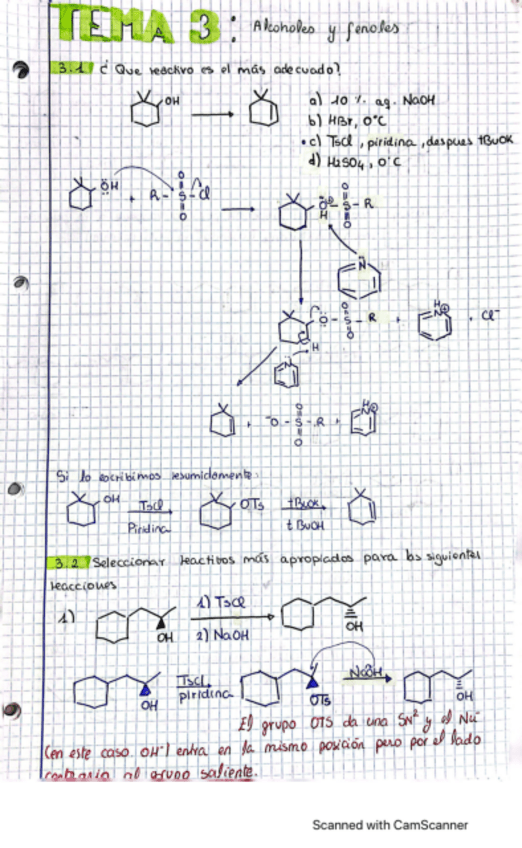 TEMA 3: Alcoholes y fenoles
3.1 ¿ Que reactivo es el más adecuado?
OH
a) 10 % aq. NaOH
b) HBr, 0°C
• c) TsCl, piridina, despues tBuOK
d) H₂SO₄, 0°C
ÖH + R-S-Cl
O
O
O-S-R
H
O
O
N
O-S-R + N + Cl⁻
H
O
O
H
N
+ ⁻O-S-R + N
O
O
H
Si lo escribimos resumidamente:
OH TsCl Piridina OTs tBuOK tBuOH
3.2 Seleccionar reactivos más apropiados para los siguientes
reacciones
1) OH 1) TsCl 2) NaOH OH
OH TsCl piridina OTs NaOH OH
El grupo OTS da una SN² y el Nu⁻
(en este caso OH⁻) entra en la mismo posición pero por el lado
contrario al grupo saliente.
Scanned with CamScanner